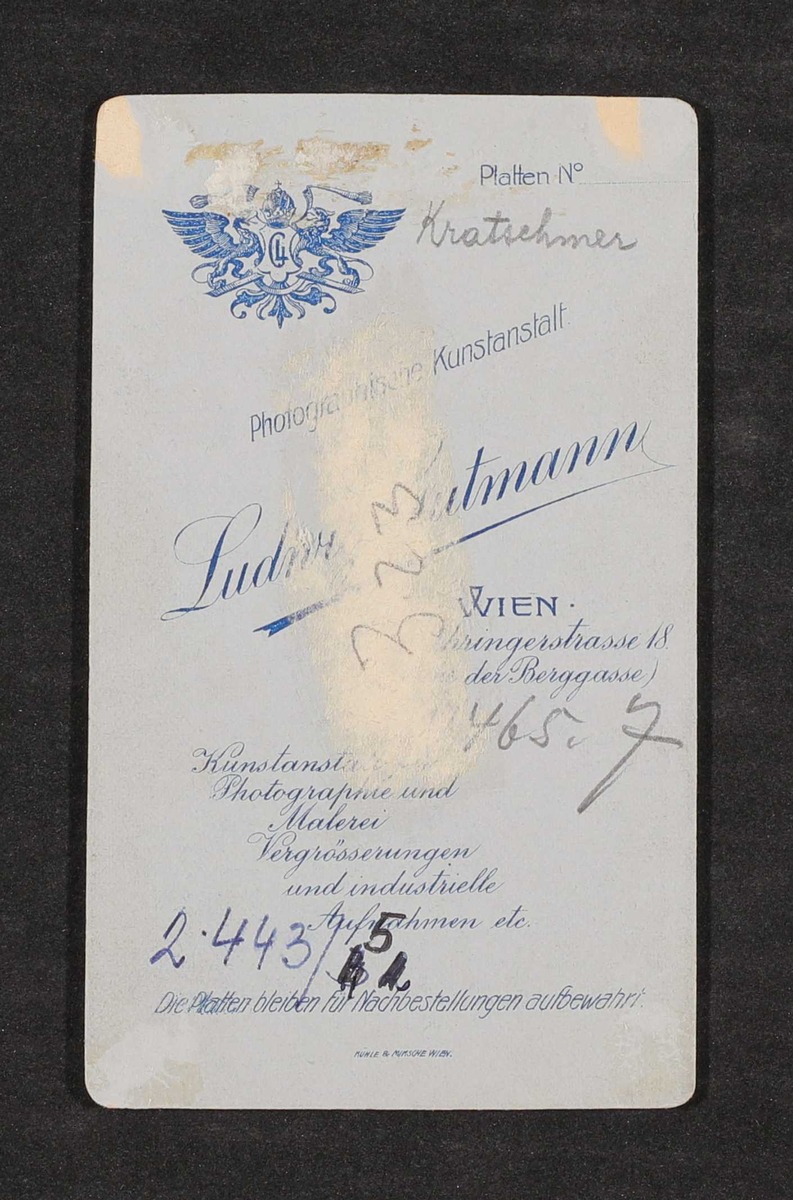 Platten Nº
GL
Kratschmer
Photographische Kunstanstalt
utmann
WIEN.
hringerstrasse 18.
der Berggasse)
323
465. 7
Photographie und
Malerei
Vergrösserungen
und industrielle
Aufnahmen etc.
2.443/5
Die Platten bleiben für Nachbestellungen aufbewahrt.